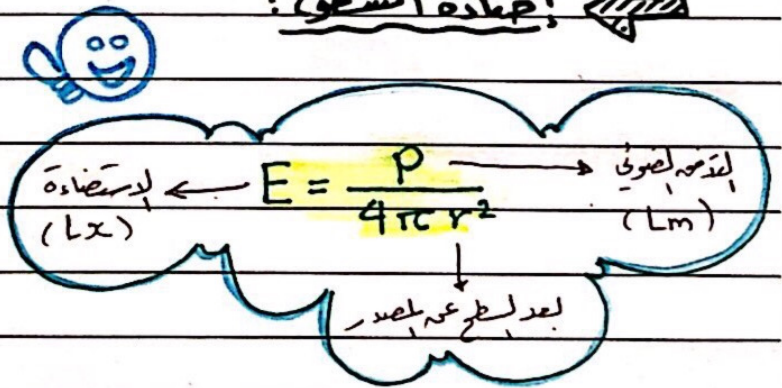 إضاءة السطوح :
الاستضاءة ← E = P / 4πr² → التدفق الضوئي
(Lx) (Lm)
بعد السطح عن المصدر